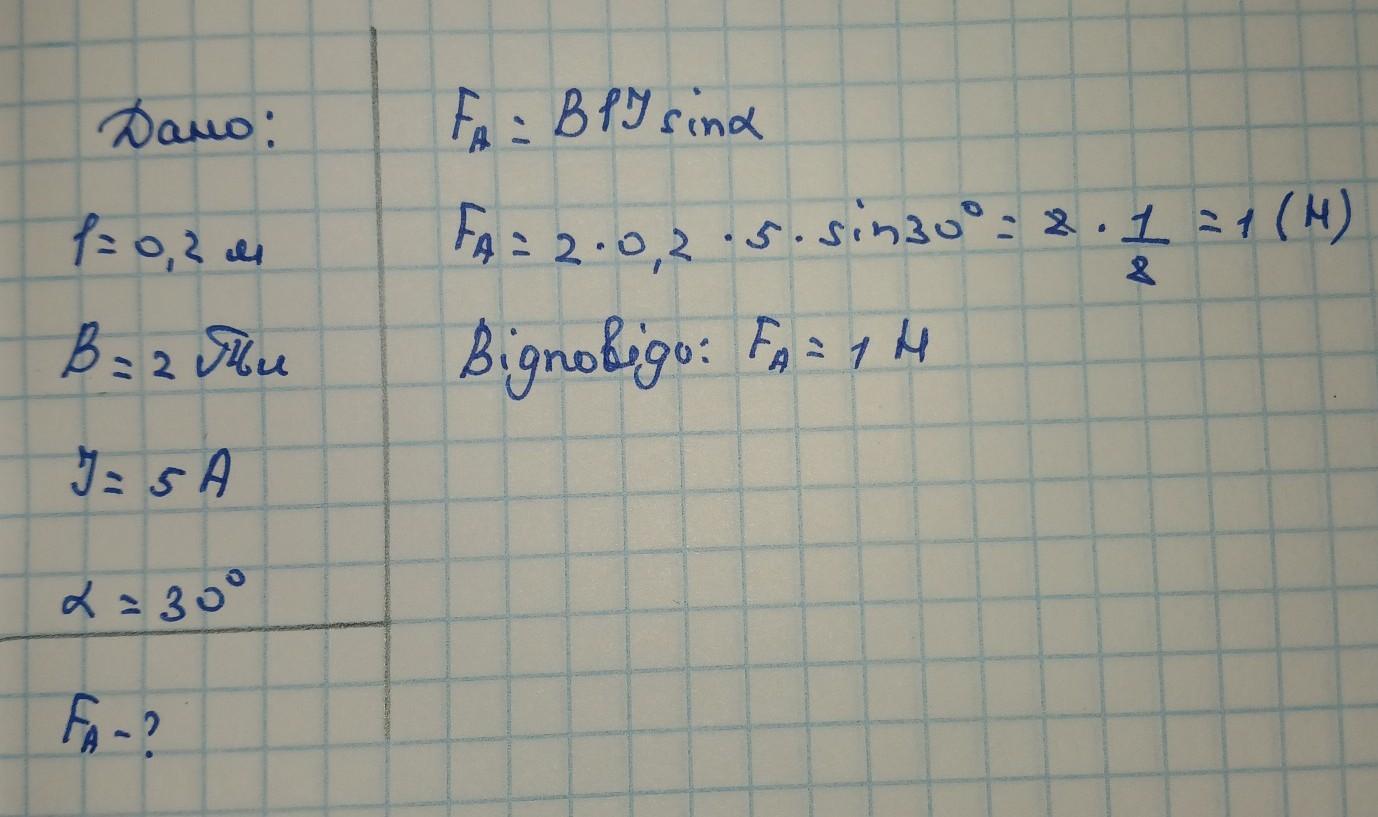 Дано:
l = 0,2 м
B = 2 Тл
I = 5 A
α = 30°
F_A - ?
F_A = B l I sinα
F_A = 2 · 0,2 · 5 · sin30° = 2 · 1/2 = 1 (Н)
Відповідь: F_A = 1 Н